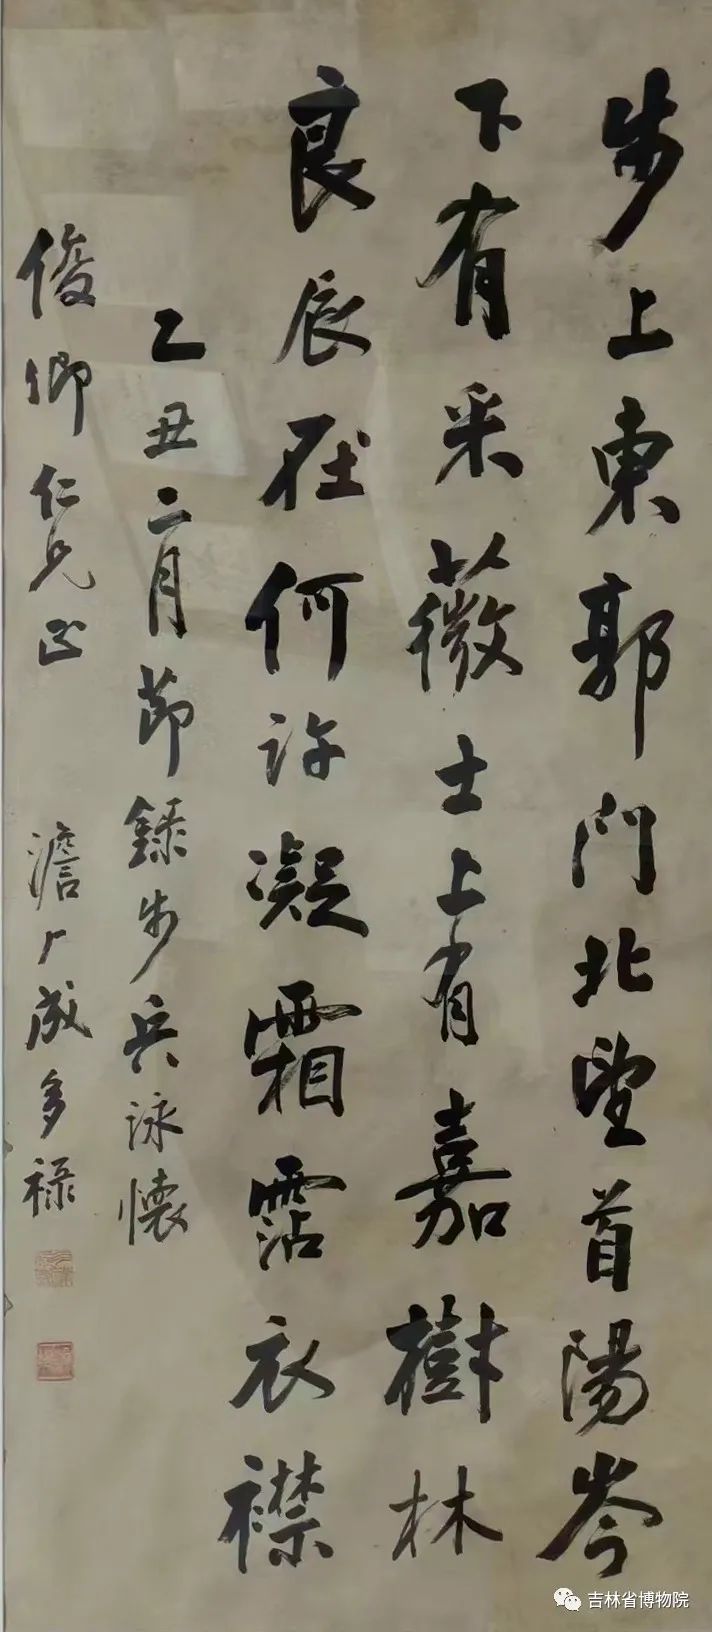 步上東郭門北望首陽岑
下有采薇士上有嘉樹林
良辰在何許凝霜霑衣襟
乙丑二月節錄步兵泳懷
俊卿仁兄正
澹厂成多祿
吉林省博物院